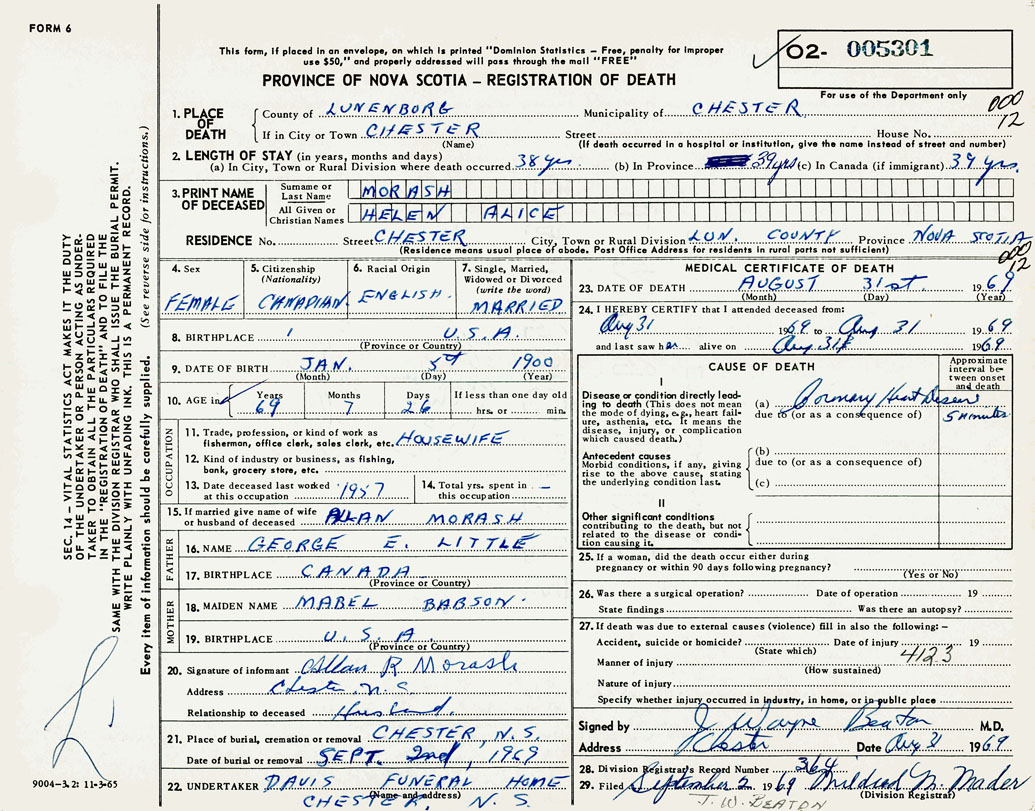 FORM 6
This form, if placed in an envelope, on which is printed "Dominion Statistics – Free, penalty for improper
use $50," and properly addressed will pass through the mail "FREE"
PROVINCE OF NOVA SCOTIA – REGISTRATION OF DEATH
O2- 005301
For use of the Department only
000
12
1. PLACE OF DEATH
County of LUNENBORG Municipality of CHESTER
If in City or Town CHESTER Street House No.
(Name) (If death occurred in a hospital or institution, give the name instead of street and number)
2. LENGTH OF STAY (in years, months and days)
(a) In City, Town or Rural Division where death occurred 38 yrs. (b) In Province 39 yrs (c) In Canada (if immigrant) 39 yrs.
3. PRINT NAME OF DECEASED
Surname or Last Name MORASH
All Given or Christian Names HELEN ALICE
RESIDENCE No. Street CHESTER City, Town or Rural Division LUN. COUNTY Province NOVA SCOTIA
(Residence means usual place of abode. Post Office Address for residents in rural parts not sufficient)
000
12
4. Sex FEMALE
5. Citizenship (Nationality) CANADIAN
6. Racial Origin ENGLISH.
7. Single, Married, Widowed or Divorced (write the word) MARRIED
8. BIRTHPLACE U.S.A.
(Province or Country)
9. DATE OF BIRTH JAN. 5th 1900
(Month) (Day) (Year)
10. AGE in Years Months Days If less than one day old
69 7 26 hrs. or min.
OCCUPATION
11. Trade, profession, or kind of work as
fisherman, office clerk, sales clerk, etc. HOUSEWIFE
12. Kind of industry or business, as fishing,
bank, grocery store, etc.
13. Date deceased last worked at this occupation 1957
14. Total yrs. spent in this occupation –
15. If married give name of wife
or husband of deceased ALLAN MORASH
FATHER
16. NAME GEORGE E. LITTLE
17. BIRTHPLACE CANADA
(Province or Country)
MOTHER
18. MAIDEN NAME MABEL BABSON.
19. BIRTHPLACE U.S.A.
(Province or Country)
20. Signature of informant Allan R Morash
Address Chester N.S
Relationship to deceased Husband.
21. Place of burial, cremation or removal CHESTER, N.S.
Date of burial or removal SEPT. 2nd, 1969
22. UNDERTAKER DAVIS FUNERAL HOME
(Name and address)
CHESTER, N.S.
MEDICAL CERTIFICATE OF DEATH
23. DATE OF DEATH AUGUST 31st. 1969
(Month) (Day) (Year)
24. I HEREBY CERTIFY that I attended deceased from:
Aug 31 1969 to Aug. 31 1969
and last saw her alive on Aug. 31st 1969.
CAUSE OF DEATH
Approximate interval between onset and death
I
Disease or condition directly leading to death (This does not mean the mode of dying, e.g., heart failure, asthenia, etc. It means the disease, injury, or complication which caused death.)
(a) Coronary Heart Disease
due to (or as a consequence of) 5 minutes
Antecedent causes
Morbid conditions, if any, giving rise to the above cause, stating the underlying condition last.
(b)
due to (or as a consequence of)
(c)
II
Other significant conditions
contributing to the death, but not related to the disease or condition causing it.
25. If a woman, did the death occur either during
pregnancy or within 90 days following pregnancy?
(Yes or No)
26. Was there a surgical operation? Date of operation 19
State findings Was there an autopsy?
27. If death was due to external causes (violence) fill in also the following: –
Accident, suicide or homicide? Date of injury 19
(State which) 4123
Manner of injury
(How sustained)
Nature of injury
Specify whether injury occurred in industry, in home, or in public place
Signed by J Wayne Beaton M.D.
Address Chester Date Aug 31 1969
28. Division Registrar's Record Number 364
29. Filed September 2 1969 Mildred M. Mader
(Division Registrar)
J. W. BEATON
SEC. 14 – VITAL STATISTICS ACT MAKES IT THE DUTY
OF THE UNDERTAKER OR PERSON ACTING AS UNDER-
TAKER TO OBTAIN ALL THE PARTICULARS REQUIRED
IN THE "REGISTRATION OF DEATH" AND TO FILE THE
SAME WITH THE DIVISION REGISTRAR WHO SHALL ISSUE THE BURIAL PERMIT.
WRITE PLAINLY WITH UNFADING INK. THIS IS A PERMANENT RECORD.
Every item of information should be carefully supplied. (See reverse side for instructions.)
9004-3.2: 11-3-65